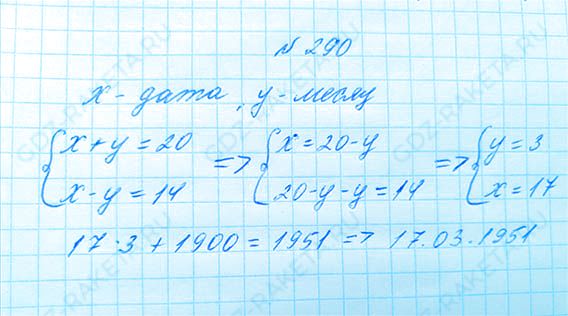 № 290
x - дата, y - месяц
{ x + y = 20 => { x = 20 - y => { y = 3
{ x - y = 14 { 20 - y - y = 14 { x = 17
17 · 3 + 1900 = 1951 => 17.03.1951
GDZ-RAKETA.RU